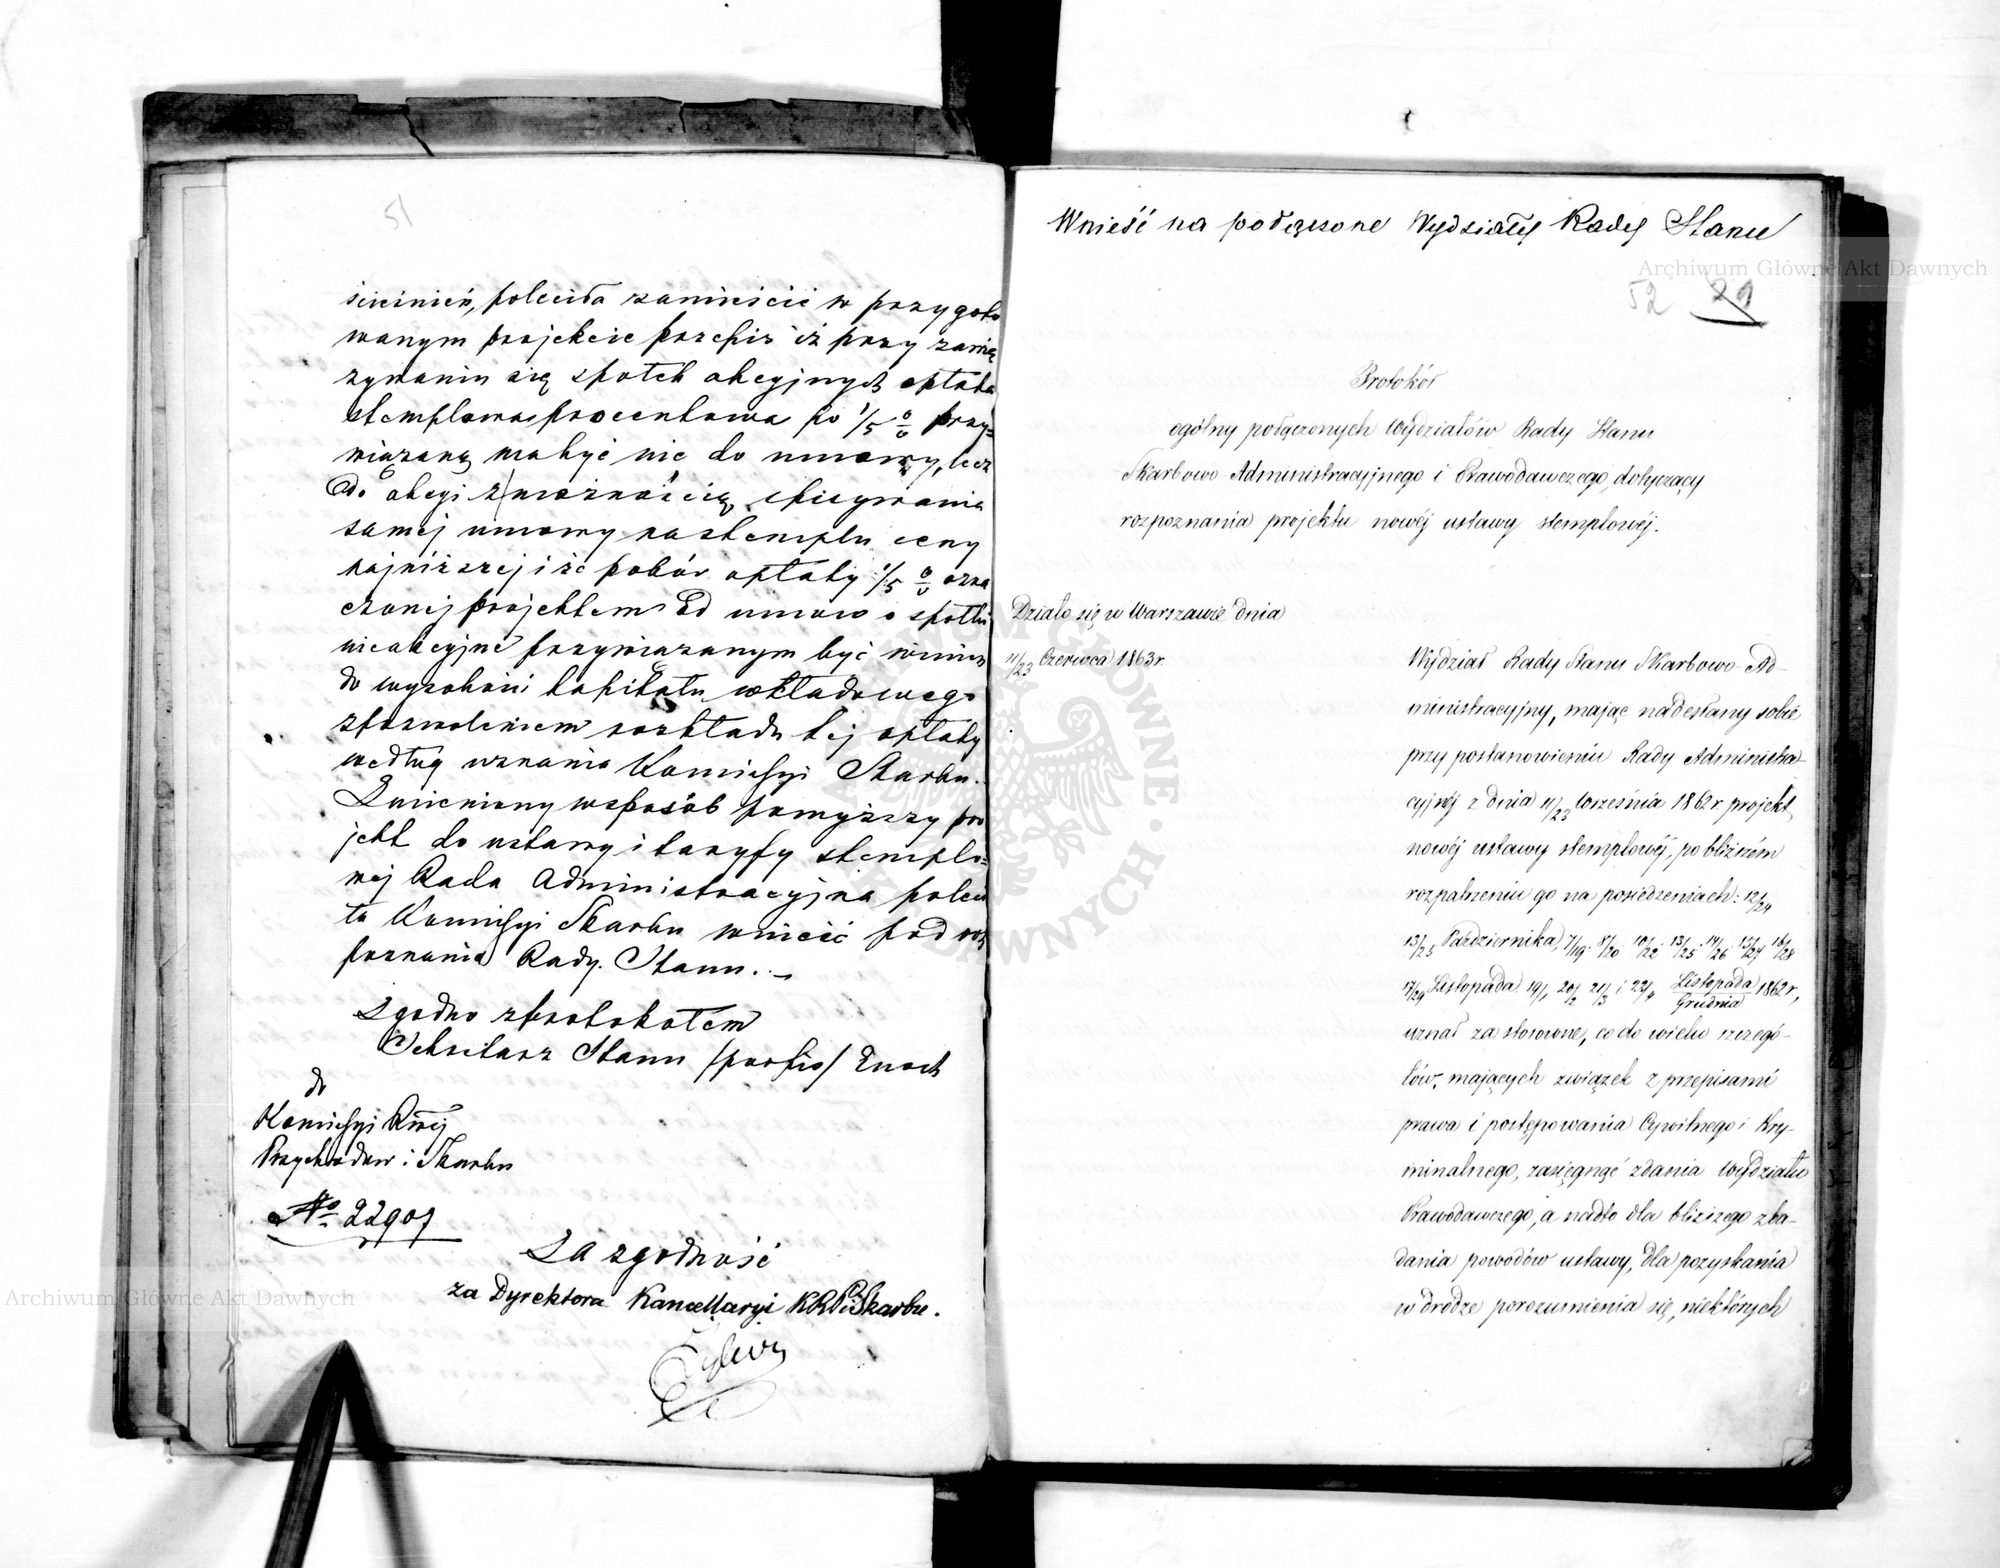 51
ścinień, poleciła zamieścić w przygoto
wanym projekcie przepis iż przy zawią
zywaniu się spółek akcyjnych opłata
stemplowa procentowa po 1/5 % przy=
wiązaną ma być nie do umowy, lecz
do akcyi z możnością spisywania
samej umowy na stemplu ceny
najniższej i że pobór opłaty 1/5 % ozna
czonej projektem od umów o spółki
nieakcyjne przywiązanym być winien
do wysokości kapitału wkładowego
z pozwoleniem rozkładu tej opłaty
według uznania Kommissyi Skarbu.
Zmieniony w sposób powyższy pro
jekt do ustawy i taryfy stemplo=
wej Rada Administracyjna poleci
ła Kommissyi Skarbu wnieść pod roz
poznanie Rady Stanu.
Zgodno z protokółem
Sekretarz Stanu /podpis/ Enoch
do
Kommissyi Rwej
Przychodów i Skarbu
No 22907
Za zgodność
za Dyrektora Kancellaryi KRPiSkarbu.
Wnieść na połączone Wydziały Rady Stanu
Archiwum Główne Akt Dawnych
52 29
Protokół
ogólny połączonych Wydziałów Rady Stanu
Skarbowo-Administracyjnego i Prawodawczego, dotyczący
rozpoznania projektu nowéj ustawy stemplowéj.
Działo się w Warszawie dnia
11/23 Czerwca 1863 r.
Wydział Rady Stanu Skarbowo-Ad-
ministracyjny, mając nadesłany sobie
przy postanowieniu Rady Administra-
cyjnéj z dnia 11/23 Września 1862 r. projekt
nowéj ustawy stemplowéj, po bliższém
rozpatrzeniu go na posiedzeniach: 12/24
13/25 Października, 7/19 8/20 10/22 13/25 14/26 15/27 16/28
17/29 Listopada 19/1 20/2 21/3 i 22/4 Listopada/Grudnia 1862 r,
uznał za stosowne, co do wielu szczegó-
łów, mających związek z przepisami
prawa i postępowania Cywilnego i Kry-
minalnego, zasięgnąć zdania Wydziału
Prawodawczego, a nadto dla bliższego zba-
dania powodów ustawy, dla pozyskania
w drodze porozumienia się, niektórych
Archiwum Główne Akt Dawnych
ARCHIWUM GŁÓWNE AKT DAWNYCH